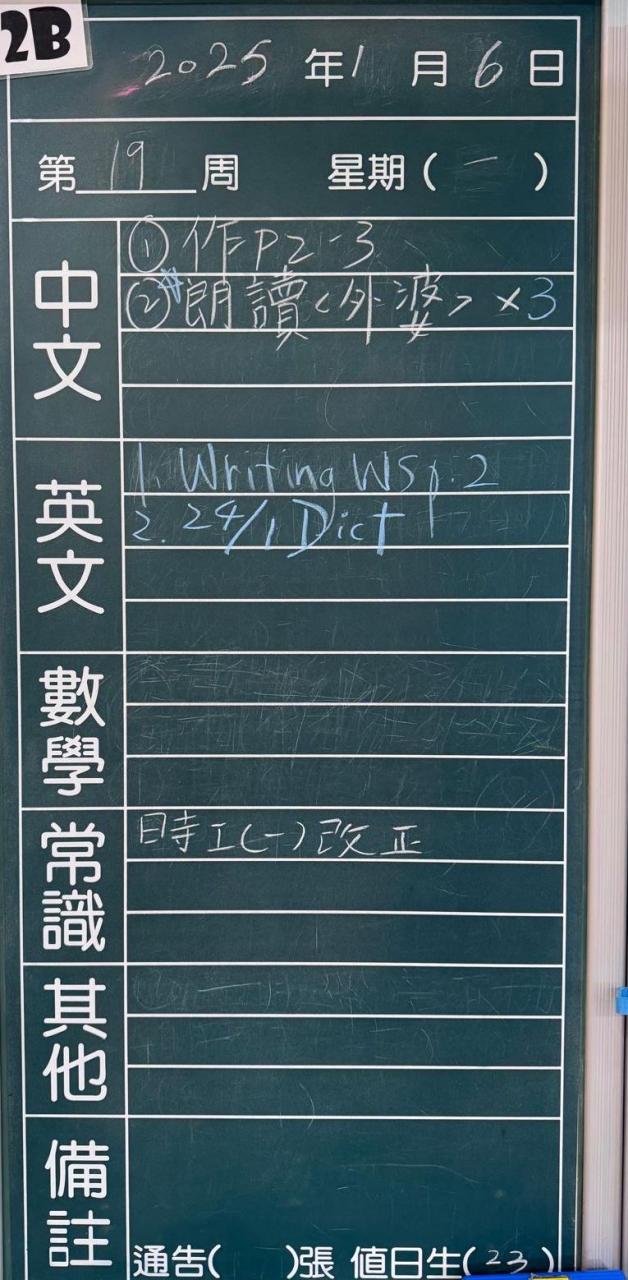 2B
2025 年 1 月 6 日
第 19 周 星期 ( 一 )
中文
① 作P2-3
②#朗讀<外婆> ×3
英文
1. Writing WS p.2
2. 24/1 Dict
數學
常識
時工(一)改正
其他
備註
通告( )張 值日生(23)